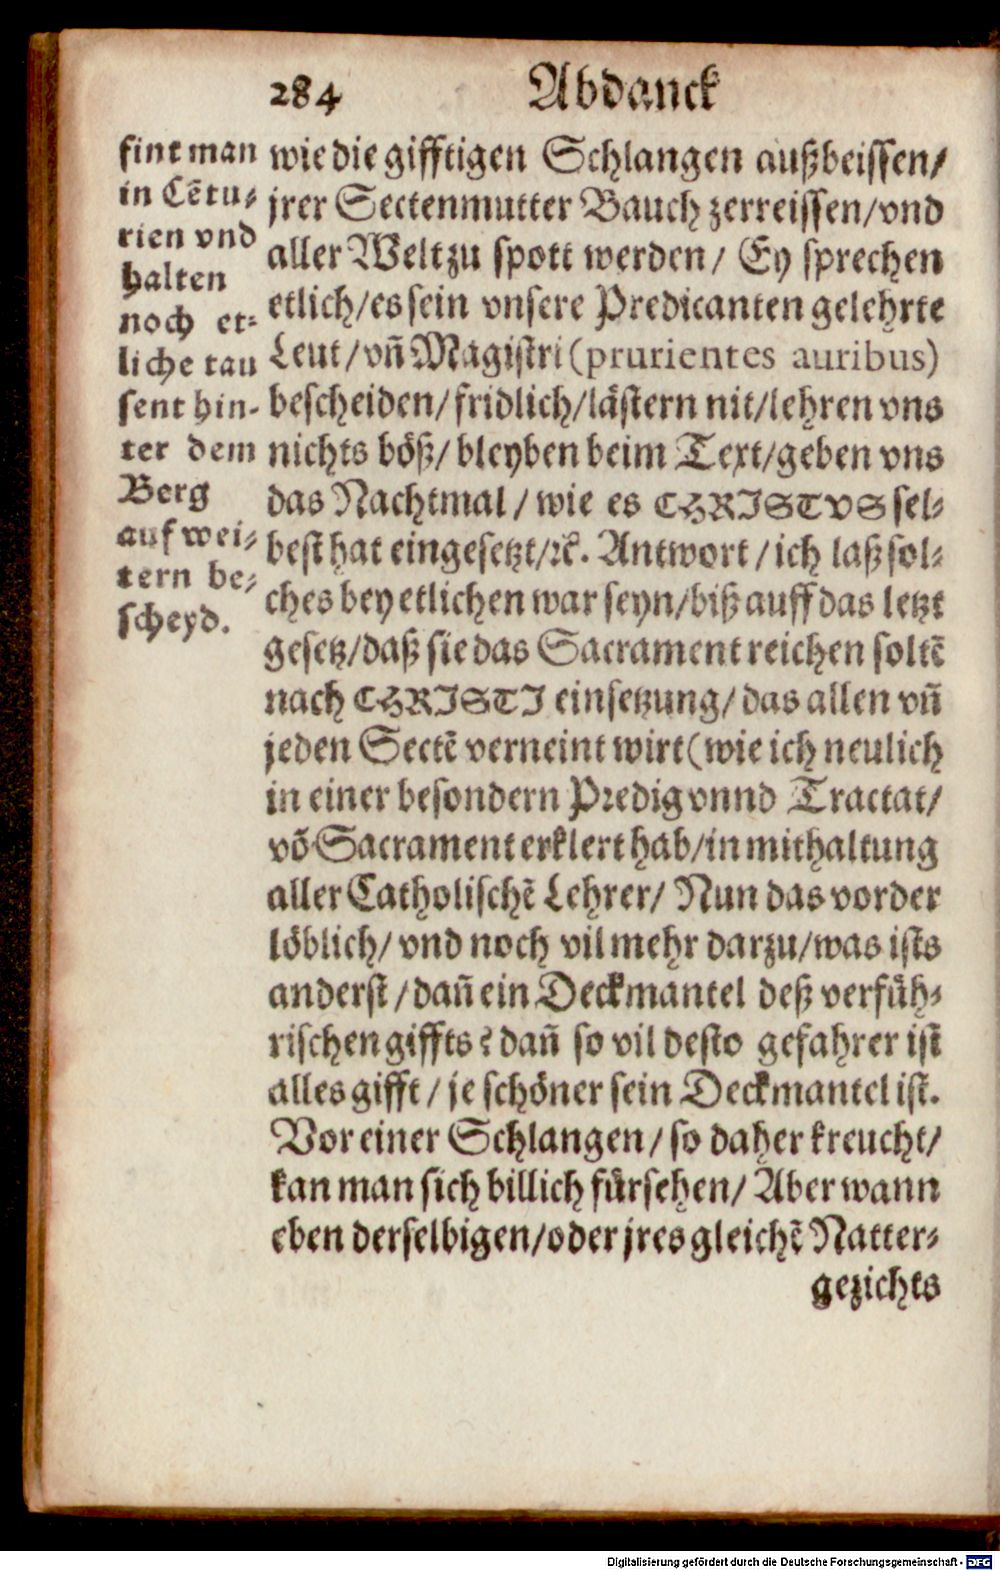 284 Abdanck
fint man
in Cētu-
rien vnd
halten
noch et-
liche tau
sent hin-
ter dem
Berg
auf wei-
tern be-
scheyd.
wie die gifftigen Schlangen außbeissen/
jrer Sectenmutter Bauch zerreissen/vnd
aller Welt zu spott werden/ Ey sprechen
etlich/es sein vnsere Predicanten gelehrte
Leut/vñ Magistri (prurientes auribus)
bescheiden/fridlich/lästern nit/lehren vns
nichts böß/bleyben beim Text/geben vns
das Nachtmal/wie es CHRISTVS sel-
best hat eingesetzt/ꝛc. Antwort/ich laß sol-
ches bey etlichen war seyn/biß auff das letzt
gesetz/daß sie das Sacrament reichen soltē
nach CHRISTI einsetzung/das allen vñ
jeden Sectē verneint wirt (wie ich neulich
in einer besondern Predig vnnd Tractat/
vō Sacrament erklert hab/in mithaltung
aller Catholischē Lehrer/ Nun das vorder
löblich/vnd noch vil mehr darzu/was ists
anderst/dañ ein Deckmantel deß verfüh-
rischen giffts? dañ so vil desto gefahrer ist
alles gifft/je schöner sein Deckmantel ist.
Vor einer Schlangen/so daher kreucht/
kan man sich billich fürsehen/ Aber wann
eben derselbigen/oder jres gleichē Natter-
gezichts
Digitalisierung gefördert durch die Deutsche Forschungsgemeinschaft - DFG